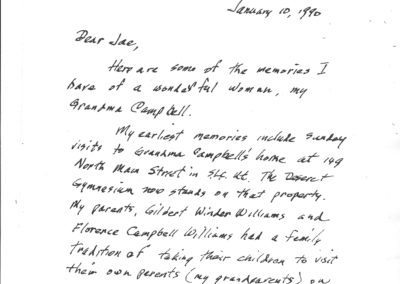 January 10, 1990
Dear Jae,
Here are some of the memories I
have of a wonderful woman, my
Grandma Campbell.
My earliest memories include Sunday
visits to Grandma Campbell's home at 149
North Main Street in SLC Ut. The Deseret
Gymnasium now stands on that property.
My parents, Gilbert Winder Williams and
Florence Campbell Williams had a family
tradition of taking their children to visit
their own parents (my grandparents) on